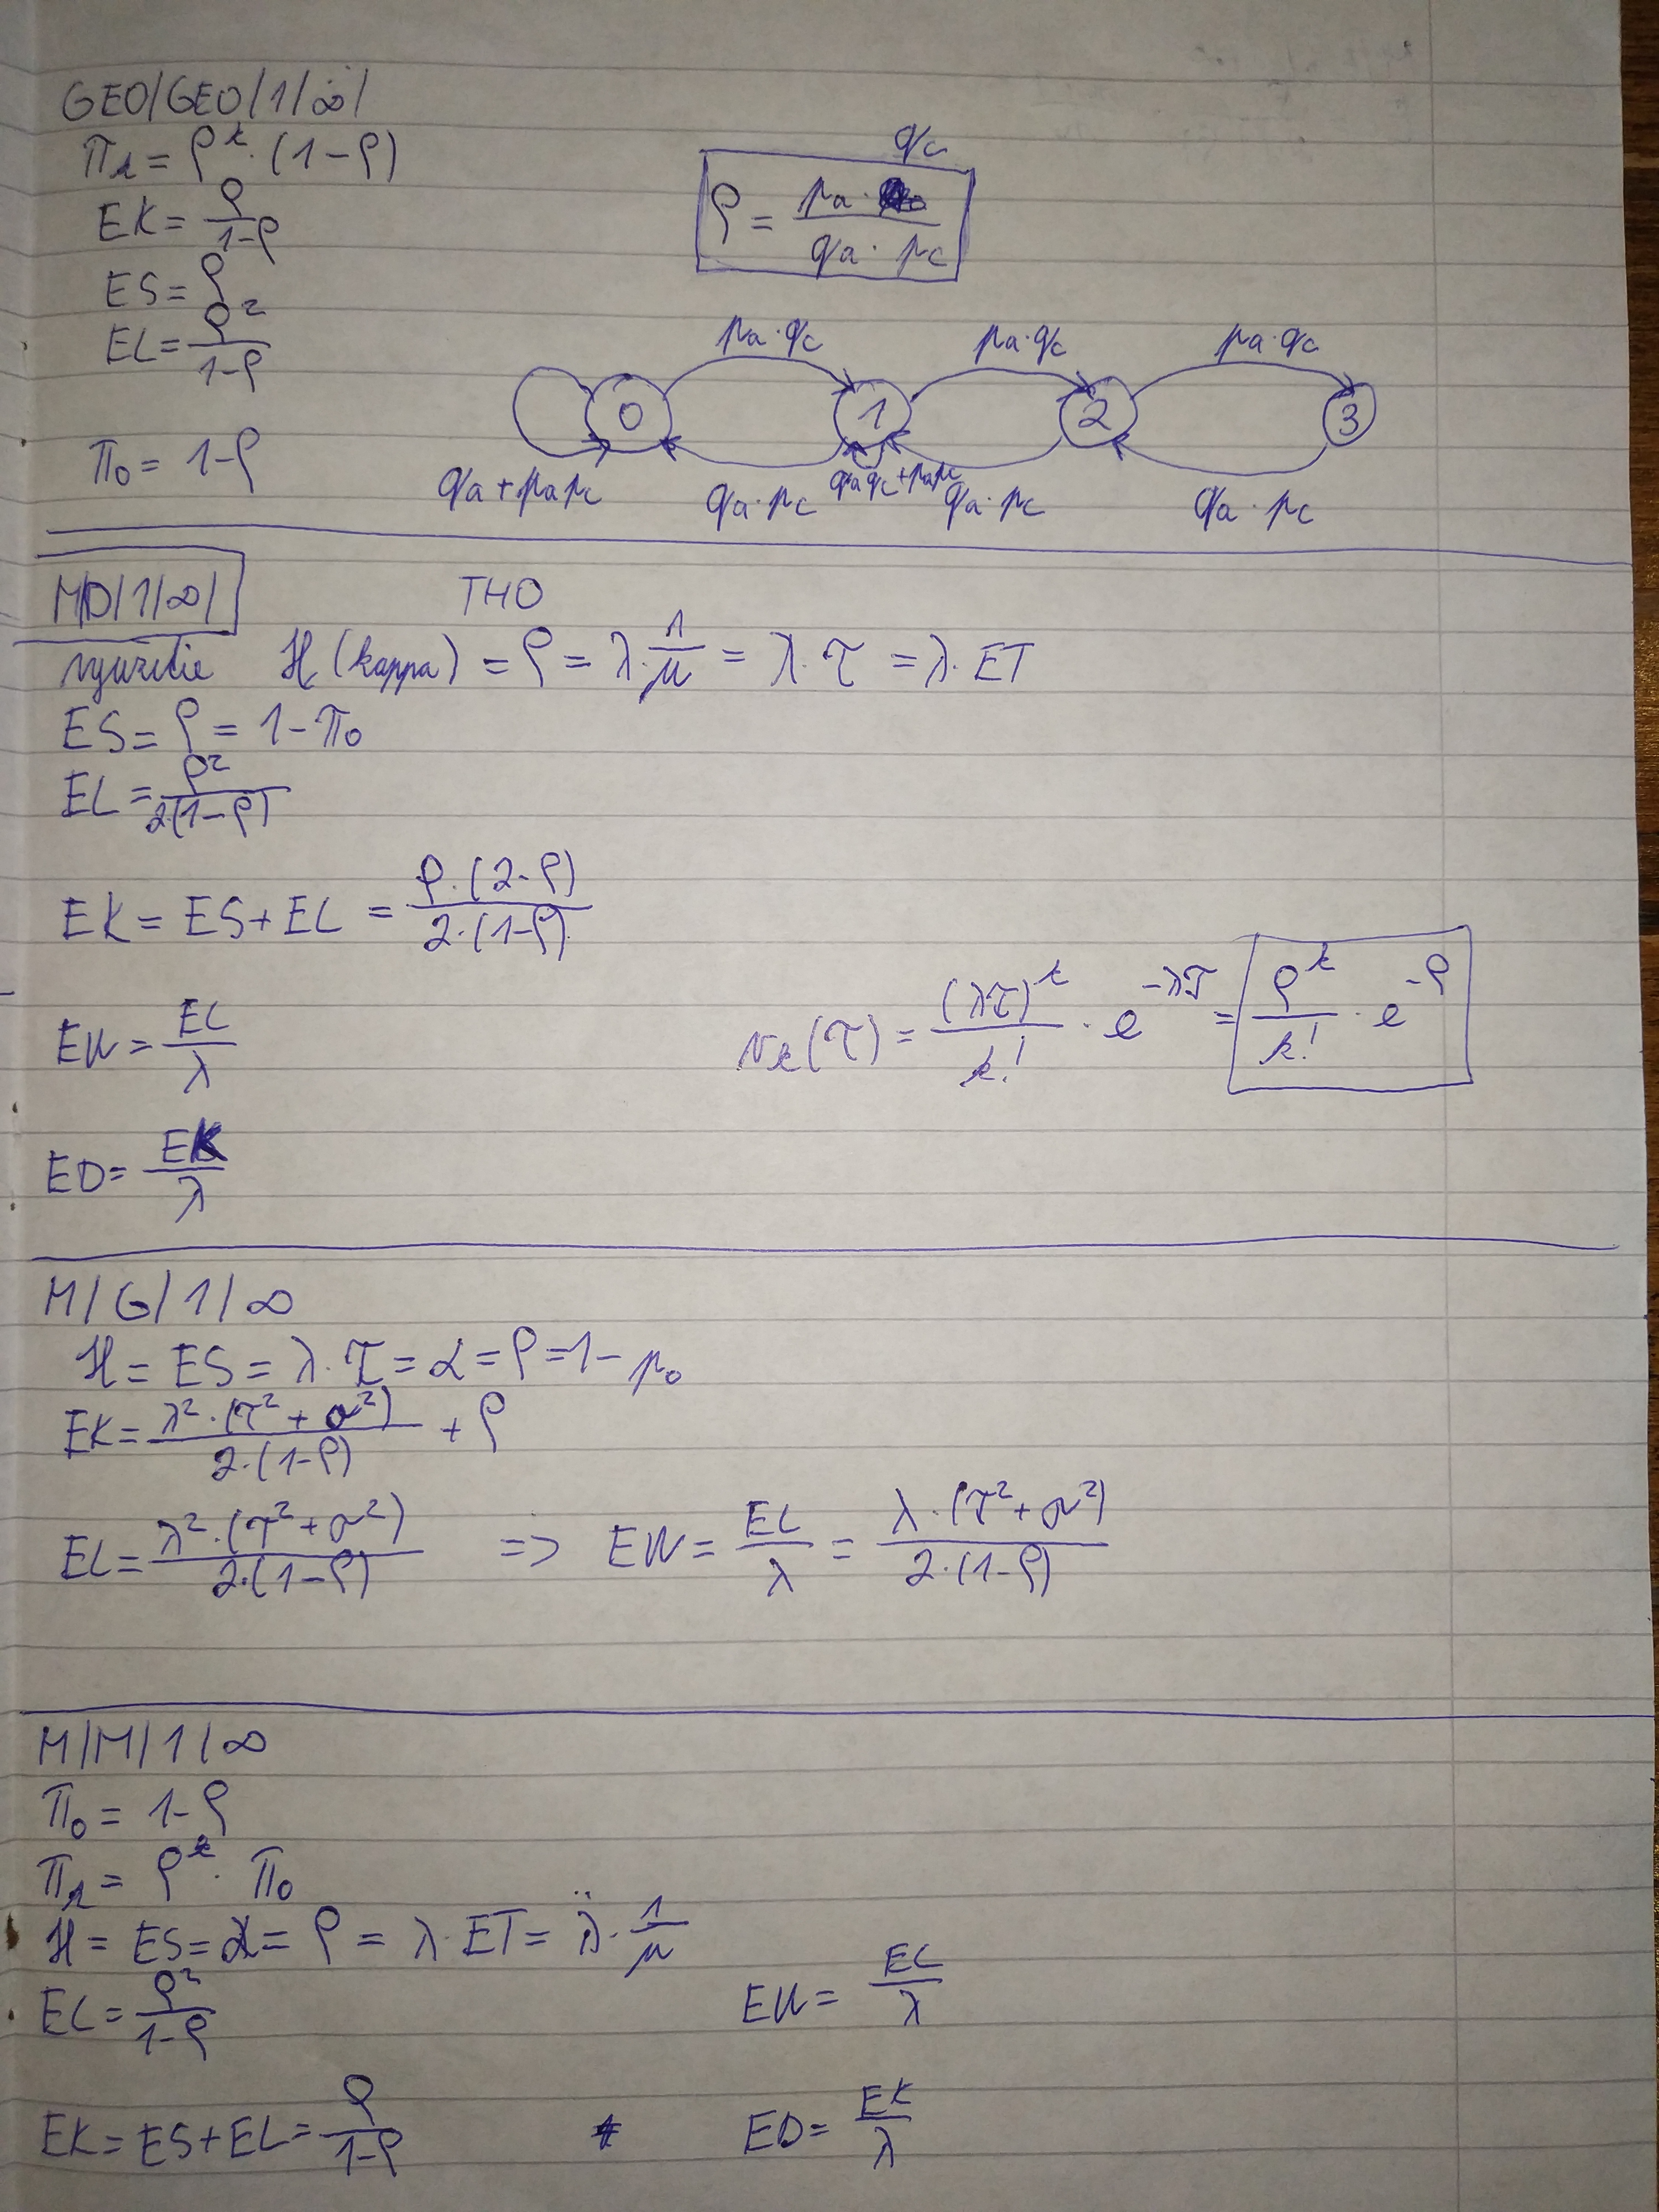 GEO/GEO/1/∞/
πₖ = ρᵏ · (1-ρ)
EK = ρ/(1-ρ)
ρ = (pa · qc)/(qa · pc)
ES = ρ
EL = ρ²/(1-ρ)
pa·qc pa·qc pa·qc
0 1 2 3
qa + pa pc qa·pc qa qc + pa pc qa·pc qa·pc
π₀ = 1-ρ
M/D/1/∞/
THO
využitie ϰ (kappa) = ρ = λ·1/μ = λ·τ = λ·ET
ES = ρ = 1-π₀
EL = ρ²/(2(1-ρ))
EK = ES+EL = (ρ·(2-ρ))/(2·(1-ρ))
EW = EL/λ
vₖ(τ) = (λτ)ᵏ/k! · e^(-λτ) = ρᵏ/k! · e^(-ρ)
ED = EK/λ
M/G/1/∞
ϰ = ES = λ·τ = α = ρ = 1-p₀
EK = (λ²·(τ²+σ²))/(2·(1-ρ)) + ρ
EL = (λ²·(τ²+σ²))/(2·(1-ρ)) => EW = EL/λ = (λ·(τ²+σ²))/(2·(1-ρ))
M/M/1/∞
π₀ = 1-ρ
πₖ = ρᵏ · π₀
ϰ = ES = α = ρ = λ·ET = λ·1/μ
EL = ρ²/(1-ρ) EW = EL/λ
EK = ES+EL = ρ/(1-ρ) ED = EK/λ